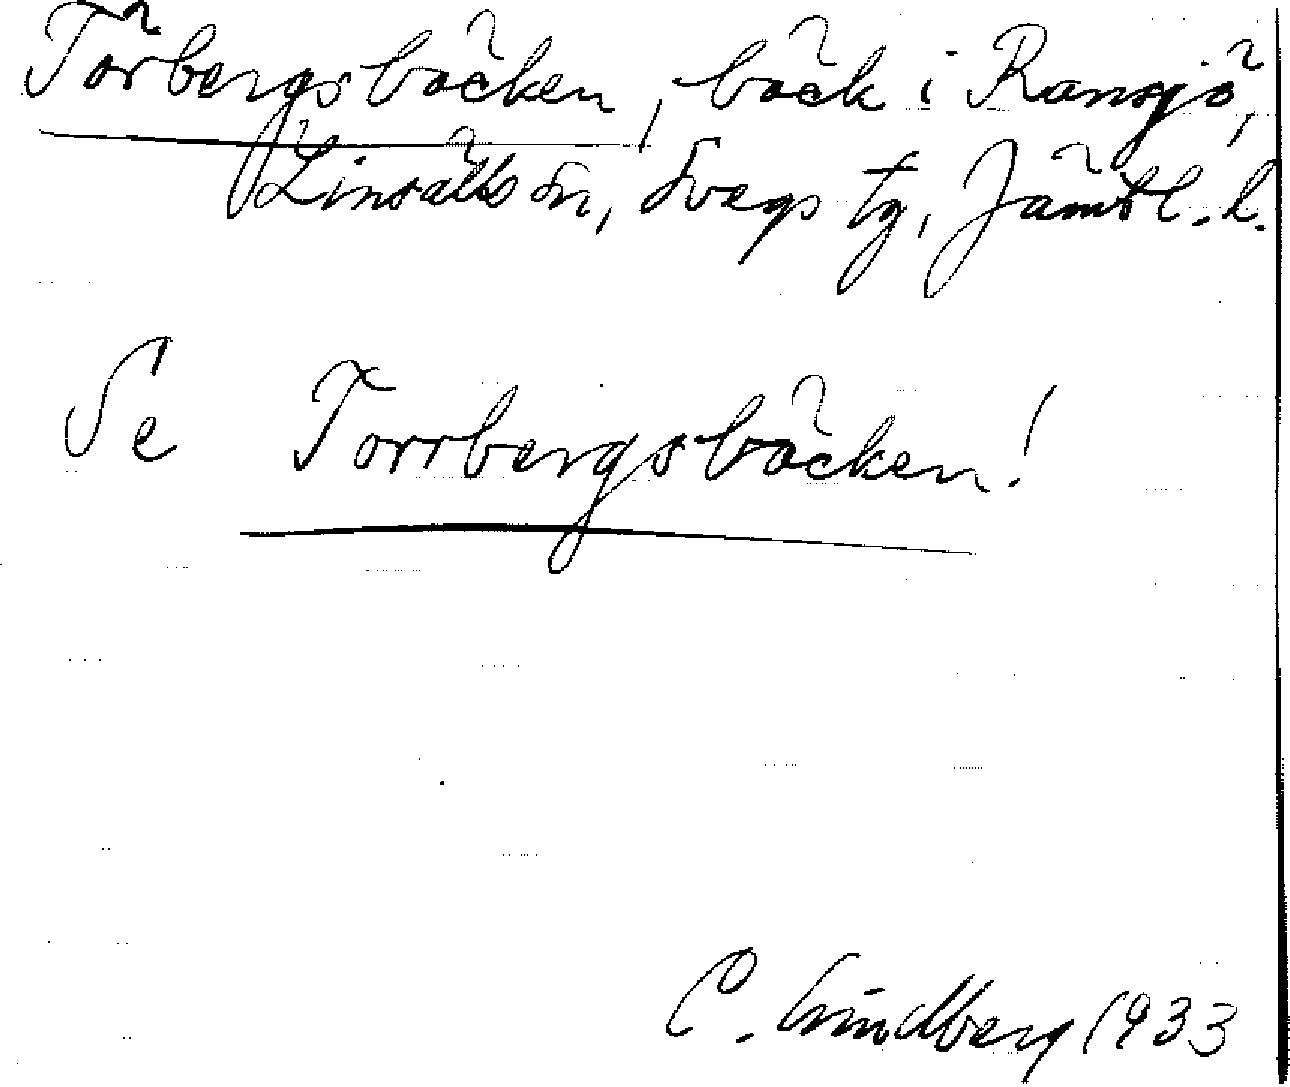 Törbergsbäcken, bäck i Ransjö,
Linsälls sn, Svegs tg, Jämtl. l.
Se Torrbergsbäcken!
C. Lindberg 1933